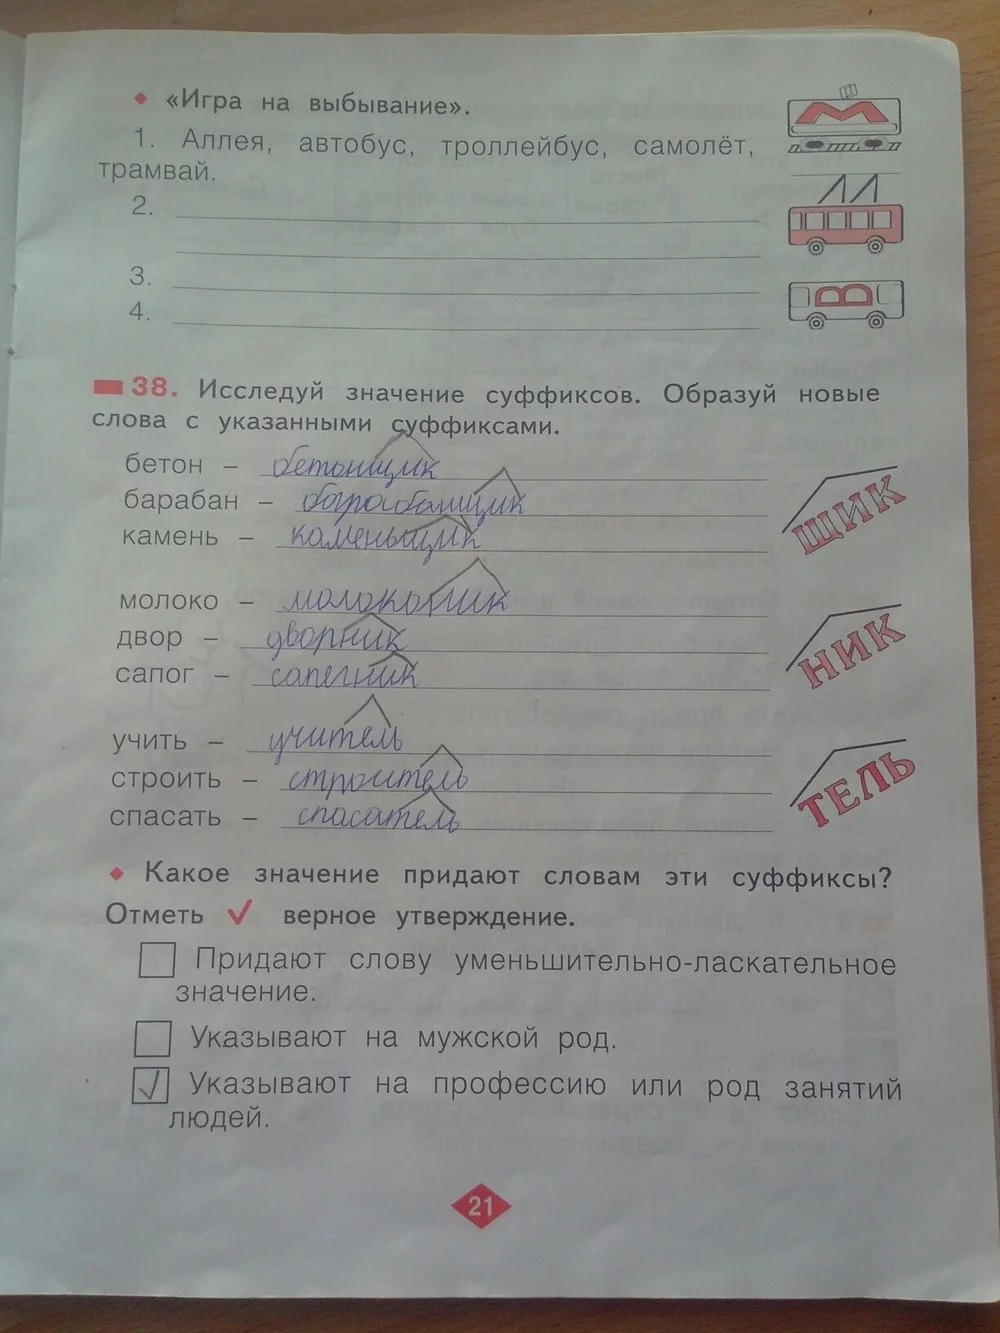 ♦ «Игра на выбывание».
1. Аллея, автобус, троллейбус, самолёт,
трамвай.
2.
3.
4.
М
В
38. Исследуй значение суффиксов. Образуй новые
слова с указанными суффиксами.
бетон – бетонщик
барабан – барабанщик
камень – каменьщик
ЩИК
молоко – молоконик
двор – дворник
сапог – сапегник
НИК
учить – учитель
строить – строитель
спасать – спасатель
ТЕЛЬ
♦ Какое значение придают словам эти суффиксы?
Отметь ✓ верное утверждение.
Придают слову уменьшительно-ласкательное
значение.
Указывают на мужской род.
✓ Указывают на профессию или род занятий
людей.
21